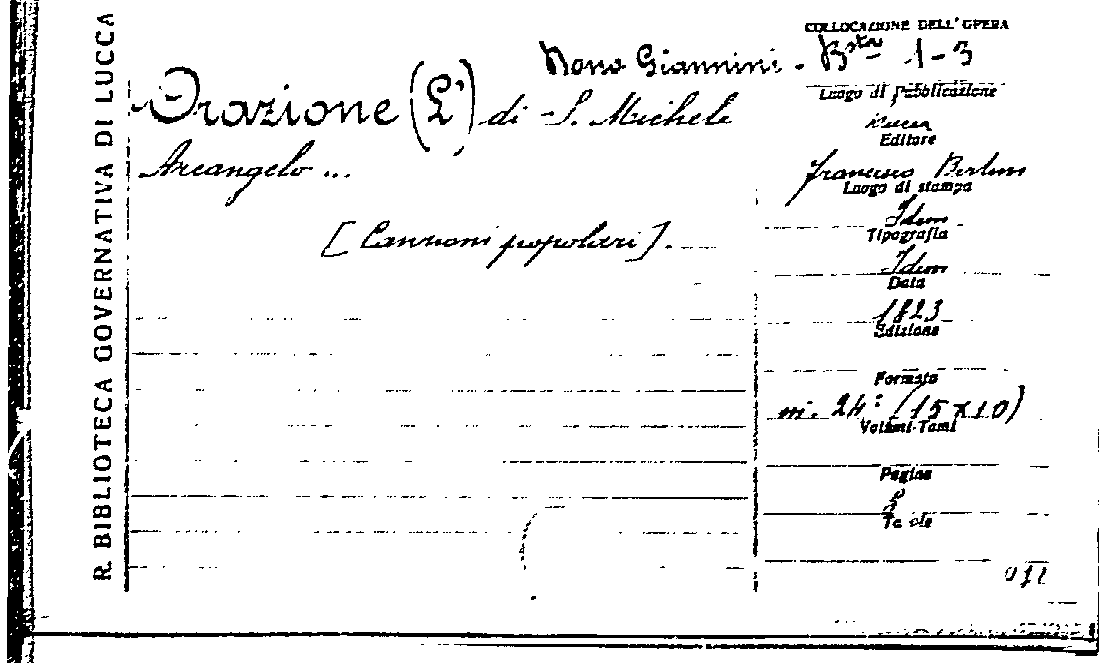 R. BIBLIOTECA GOVERNATIVA DI LUCCA
COLLOCAZIONE DELL'OPERA
Dono Giannini. Bsta 1-3
Orazione (L') di S. Michele
Arcangelo ...
[Canzoni popolari].
Luogo di pubblicazione
Lucca
Editore
Francesco Bertini
Luogo di stampa
Idem
Tipografia
Idem
Data
1823
Edizione
Formato
in. 24° (15x10)
Volumi-Tomi
Pagine
8
Tavole